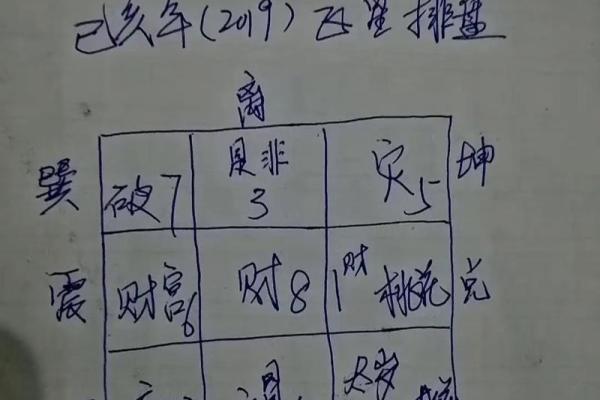 己亥年(2019)飞星排盘
离
巽 破7 是非3 灾5 坤
震 财宫6 财8 1财桃花 兑
太岁